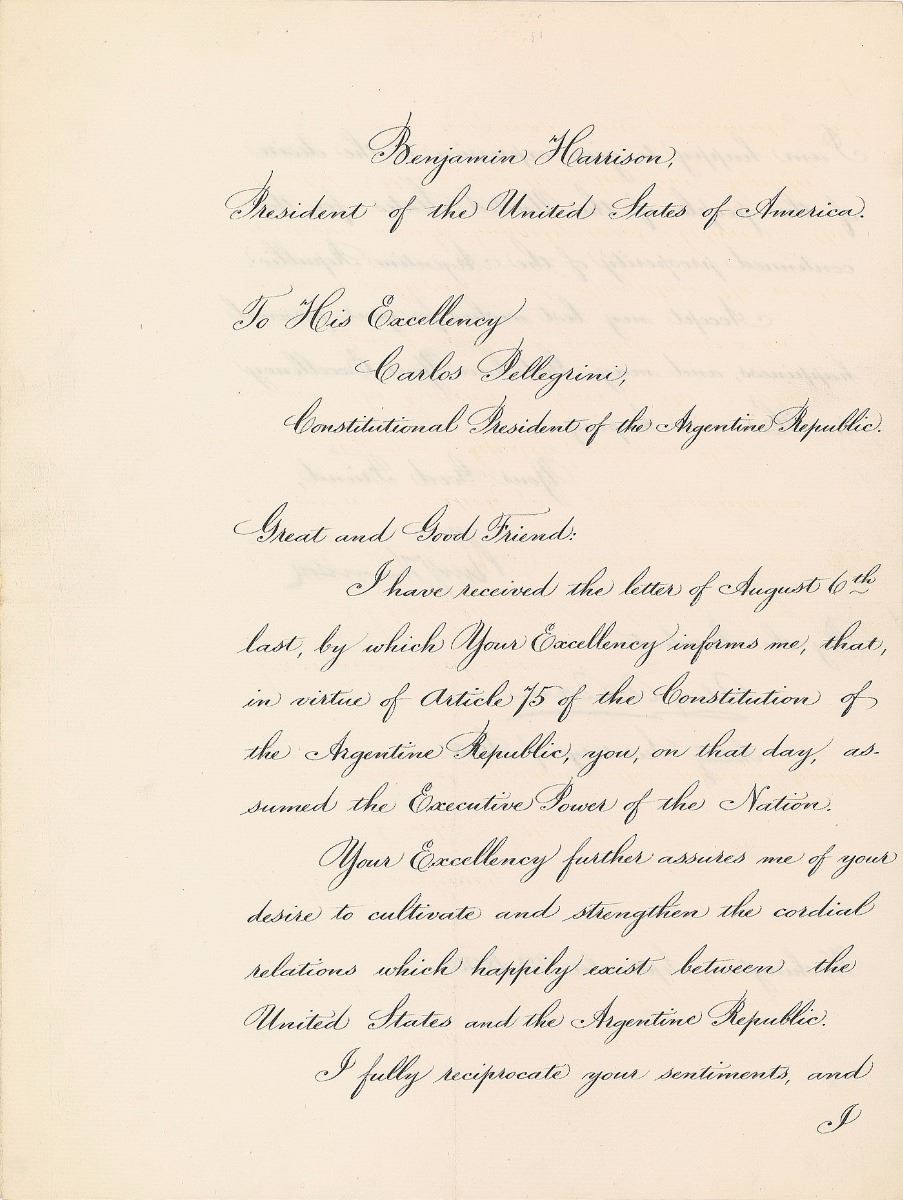 Benjamin Harrison,
President of the United States of America.
To His Excellency
Carlos Pellegrini,
Constitutional President of the Argentine Republic.
Great and Good Friend:
I have received the letter of August 6th
last, by which Your Excellency informs me, that,
in virtue of Article 75 of the Constitution of
the Argentine Republic, you, on that day, as-
sumed the Executive Power of the Nation.
Your Excellency further assures me of your
desire to cultivate and strengthen the cordial
relations which happily exist between the
United States and the Argentine Republic.
I fully reciprocate your sentiments, and
I